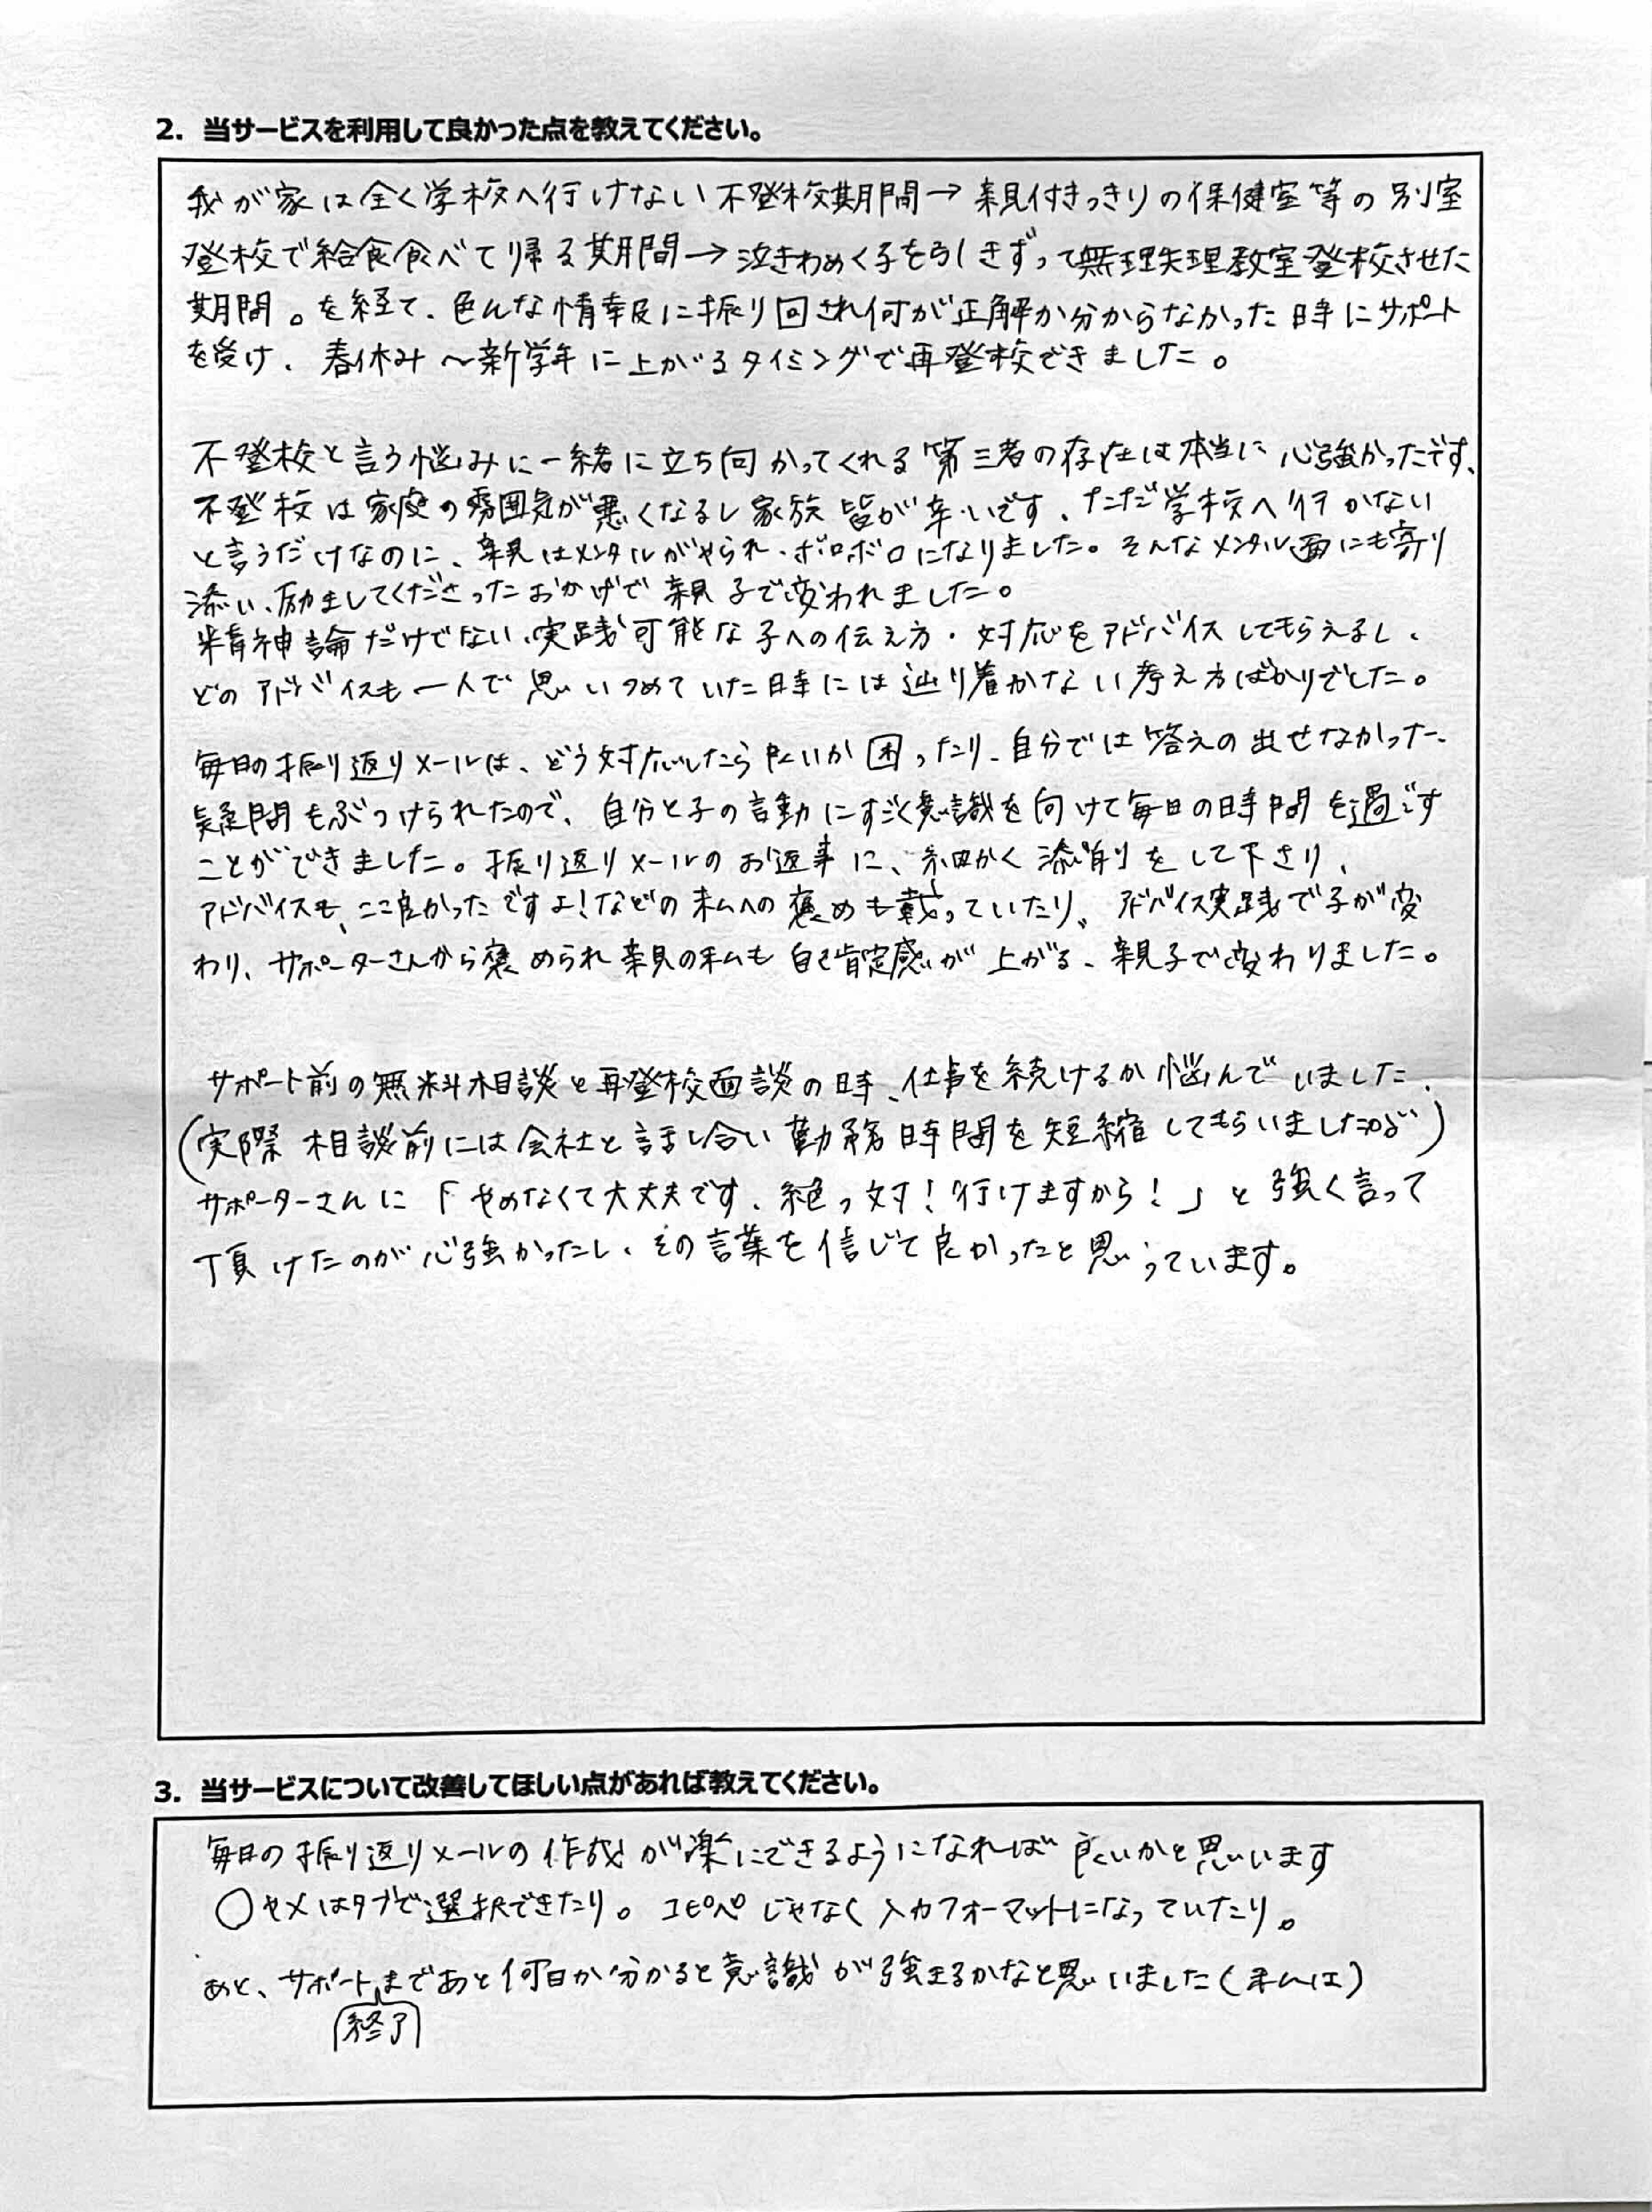 2. 当サービスを利用して良かった点を教えてください。
我が家は全く学校へ行けない不登校期間→親付きっきりの保健室等の別室
登校で給食食べて帰る期間→泣きわめく子を引きずって無理矢理教室登校させた
期間。を経て、色んな情報に振り回され何が正解か分からなかった時にサポート
を受け、春休み〜新学年に上がるタイミングで再登校できました。
不登校と言う悩みに一緒に立ち向かってくれる第三者の存在は本当に心強かったです、
不登校は家庭の雰囲気が悪くなるし家族皆が辛いです、ただ学校へ行かない
と言うだけなのに、親はメンタルがやられ、ボロボロになりました。そんなメンタル面にも寄り
添い、励ましてくださったおかげで親子で変われました。
精神論だけでない、実践可能な子への伝え方・対応をアドバイスしてもらえるし、
どのアドバイスも一人で思いつめていた時には辿り着かない考え方ばかりでした。
毎日の振り返りメールは、どう対応したら良いか困ったり、自分では答えの出せなかった、
疑問もぶつけられたので、自分と子の言動にすごく意識を向けて毎日の時間を過ごす
ことができました。振り返りメールのお返事に、細かく添削をして下さり、
アドバイスも、ここ良かったですよ!などの私への褒めも載っていたり、アドバイス実践で子が変
わり、サポーターさんから褒められ親の私も自己肯定感が上がる、親子で変わりました。
サポート前の無料相談と再登校面談の時、仕事を続けるか悩んでいました、
(実際相談前には会社と話し合い勤務時間を短縮してもらいましたが)
サポーターさんに「やめなくて大丈夫です、絶っ対!行けますから!」と強く言って
頂けたのが心強かったし、その言葉を信じて良かったと思っています。
3. 当サービスについて改善してほしい点があれば教えてください。
毎日の振り返りメールの作成が楽にできるようになれば良いかと思います
〇やメはタブで選択できたり。コピペじゃなく入力フォーマットになっていたり。
あと、サポート終了まであと何日か分かると意識が強まるかなと思いました(私は)